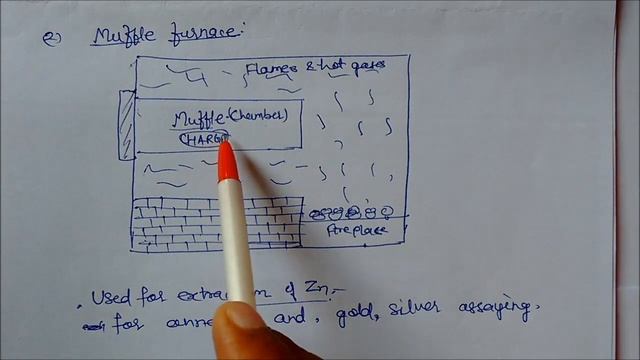 2) Muffle furnace:
Flames & hot gases
Muffle (Chamber)
CHARGE
Fireplace
. Used for extraction of Zn.
for and, gold, silver assaying.